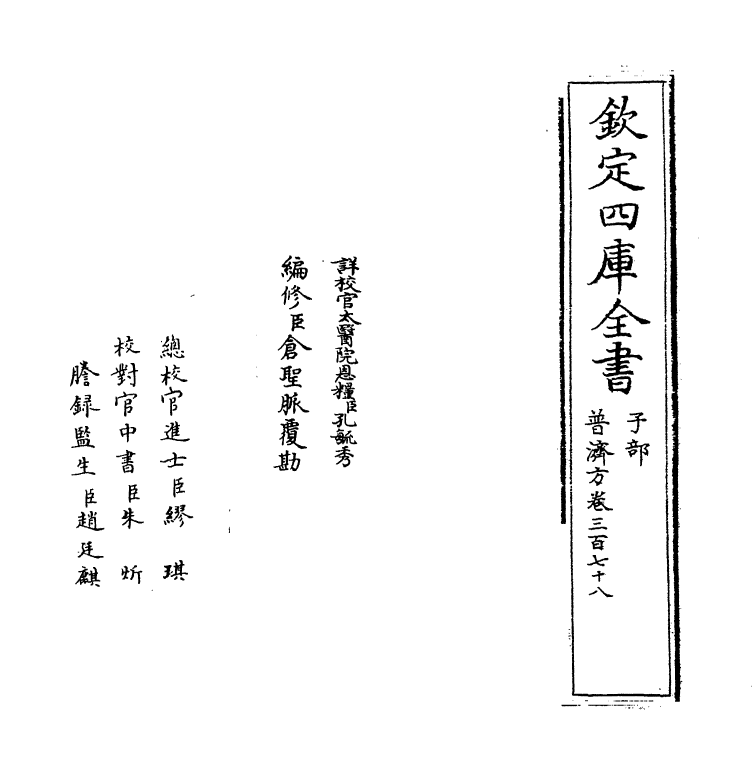 欽定四庫全書
子部
普濟方卷三百七十八
詳校官太醫院恩糧臣孔毓秀
編修臣倉聖脈覆勘
總校官進士臣繆琪
校對官中書臣朱炘
謄録監生臣趙廷麒